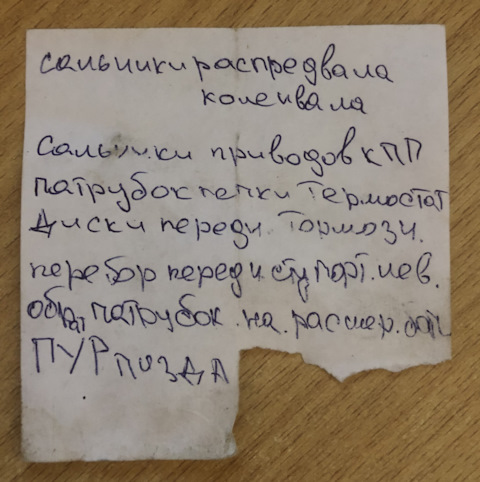 сальники распредвала
коленвала
Сальники приводов КПП
патрубок печки Термостат
Диски передн. Тормозн.
перебор передн ступорт. лев.
обрат патрубок. на. расшер. бач
ПУР ПИЗДА